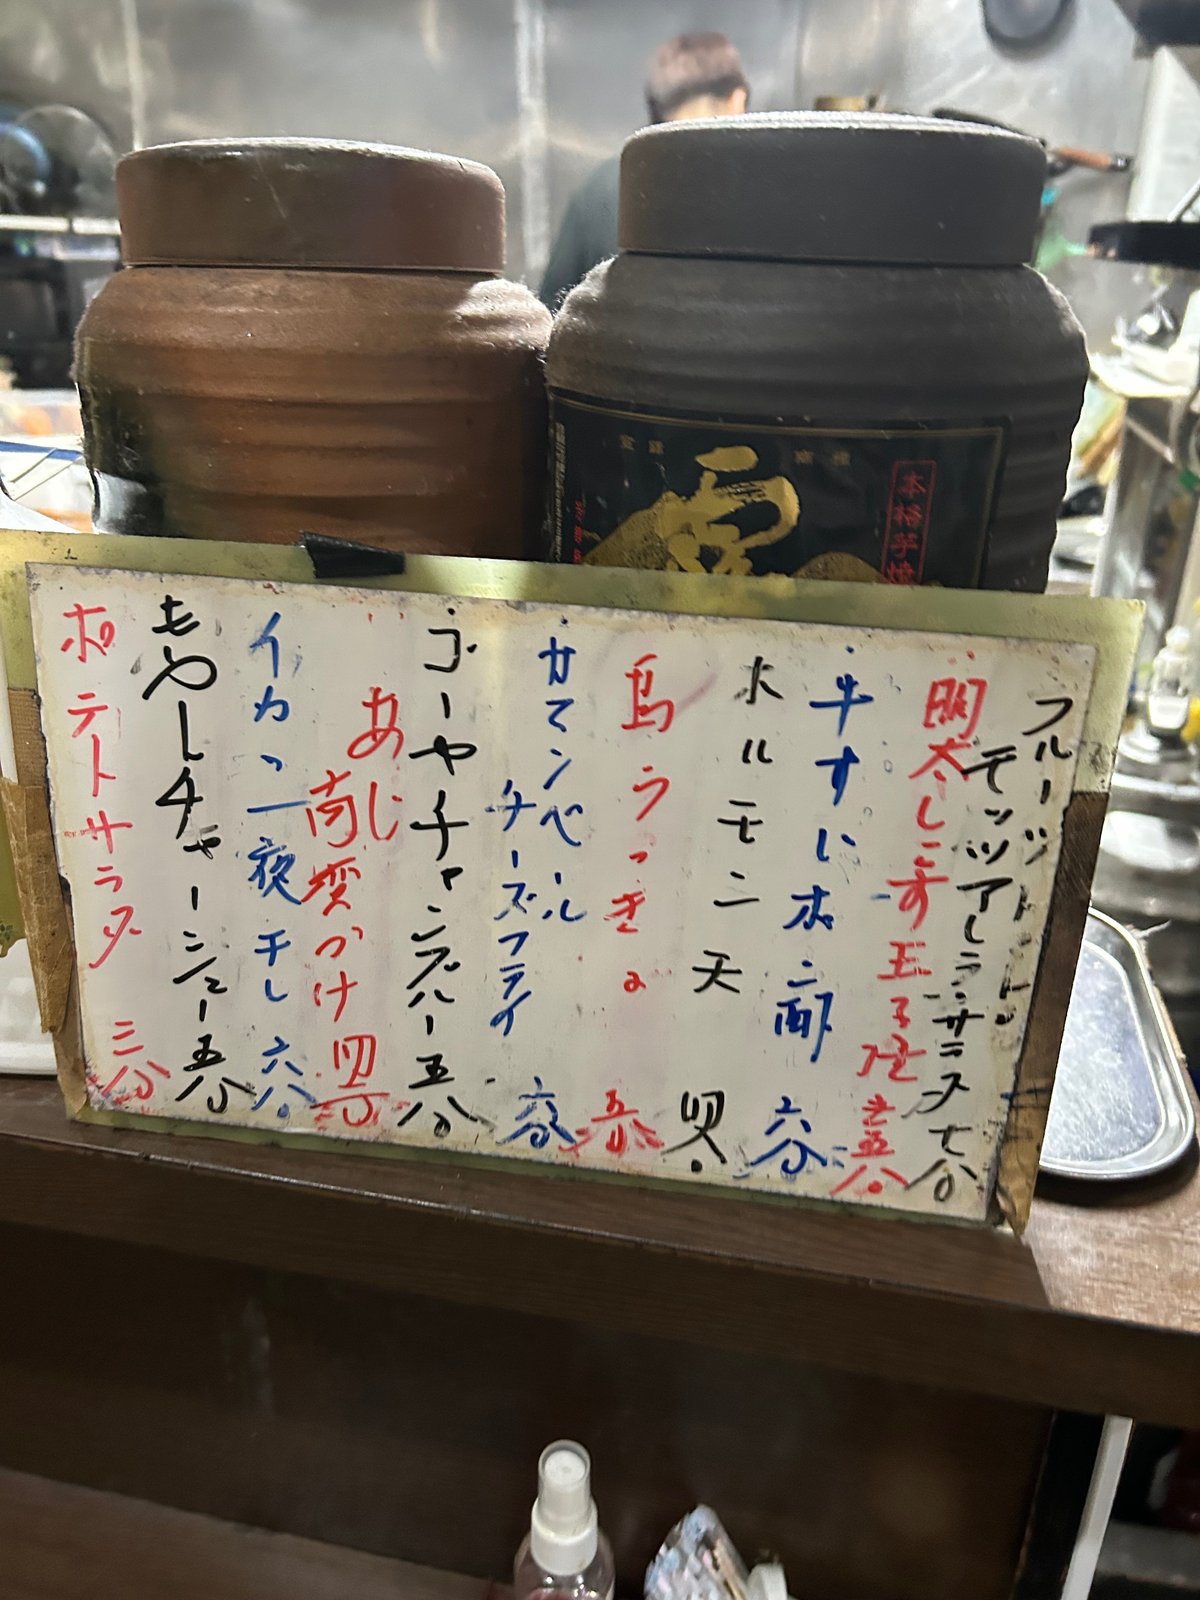 本格芋焼
フルーツトマト
モッツアレラサラダ 七八〇
明太しらす玉子焼
牛すじポン酢 六八〇
ホルモン天 四八〇
島らっきょ 五八〇
カマンベール
チーズフライ 六八〇
ゴーヤチャンプルー 五八〇
あじ
南蛮づけ
イカの一夜干し 六八〇
もやしチャーシュー 五八〇
ポテトサラダ 三八〇